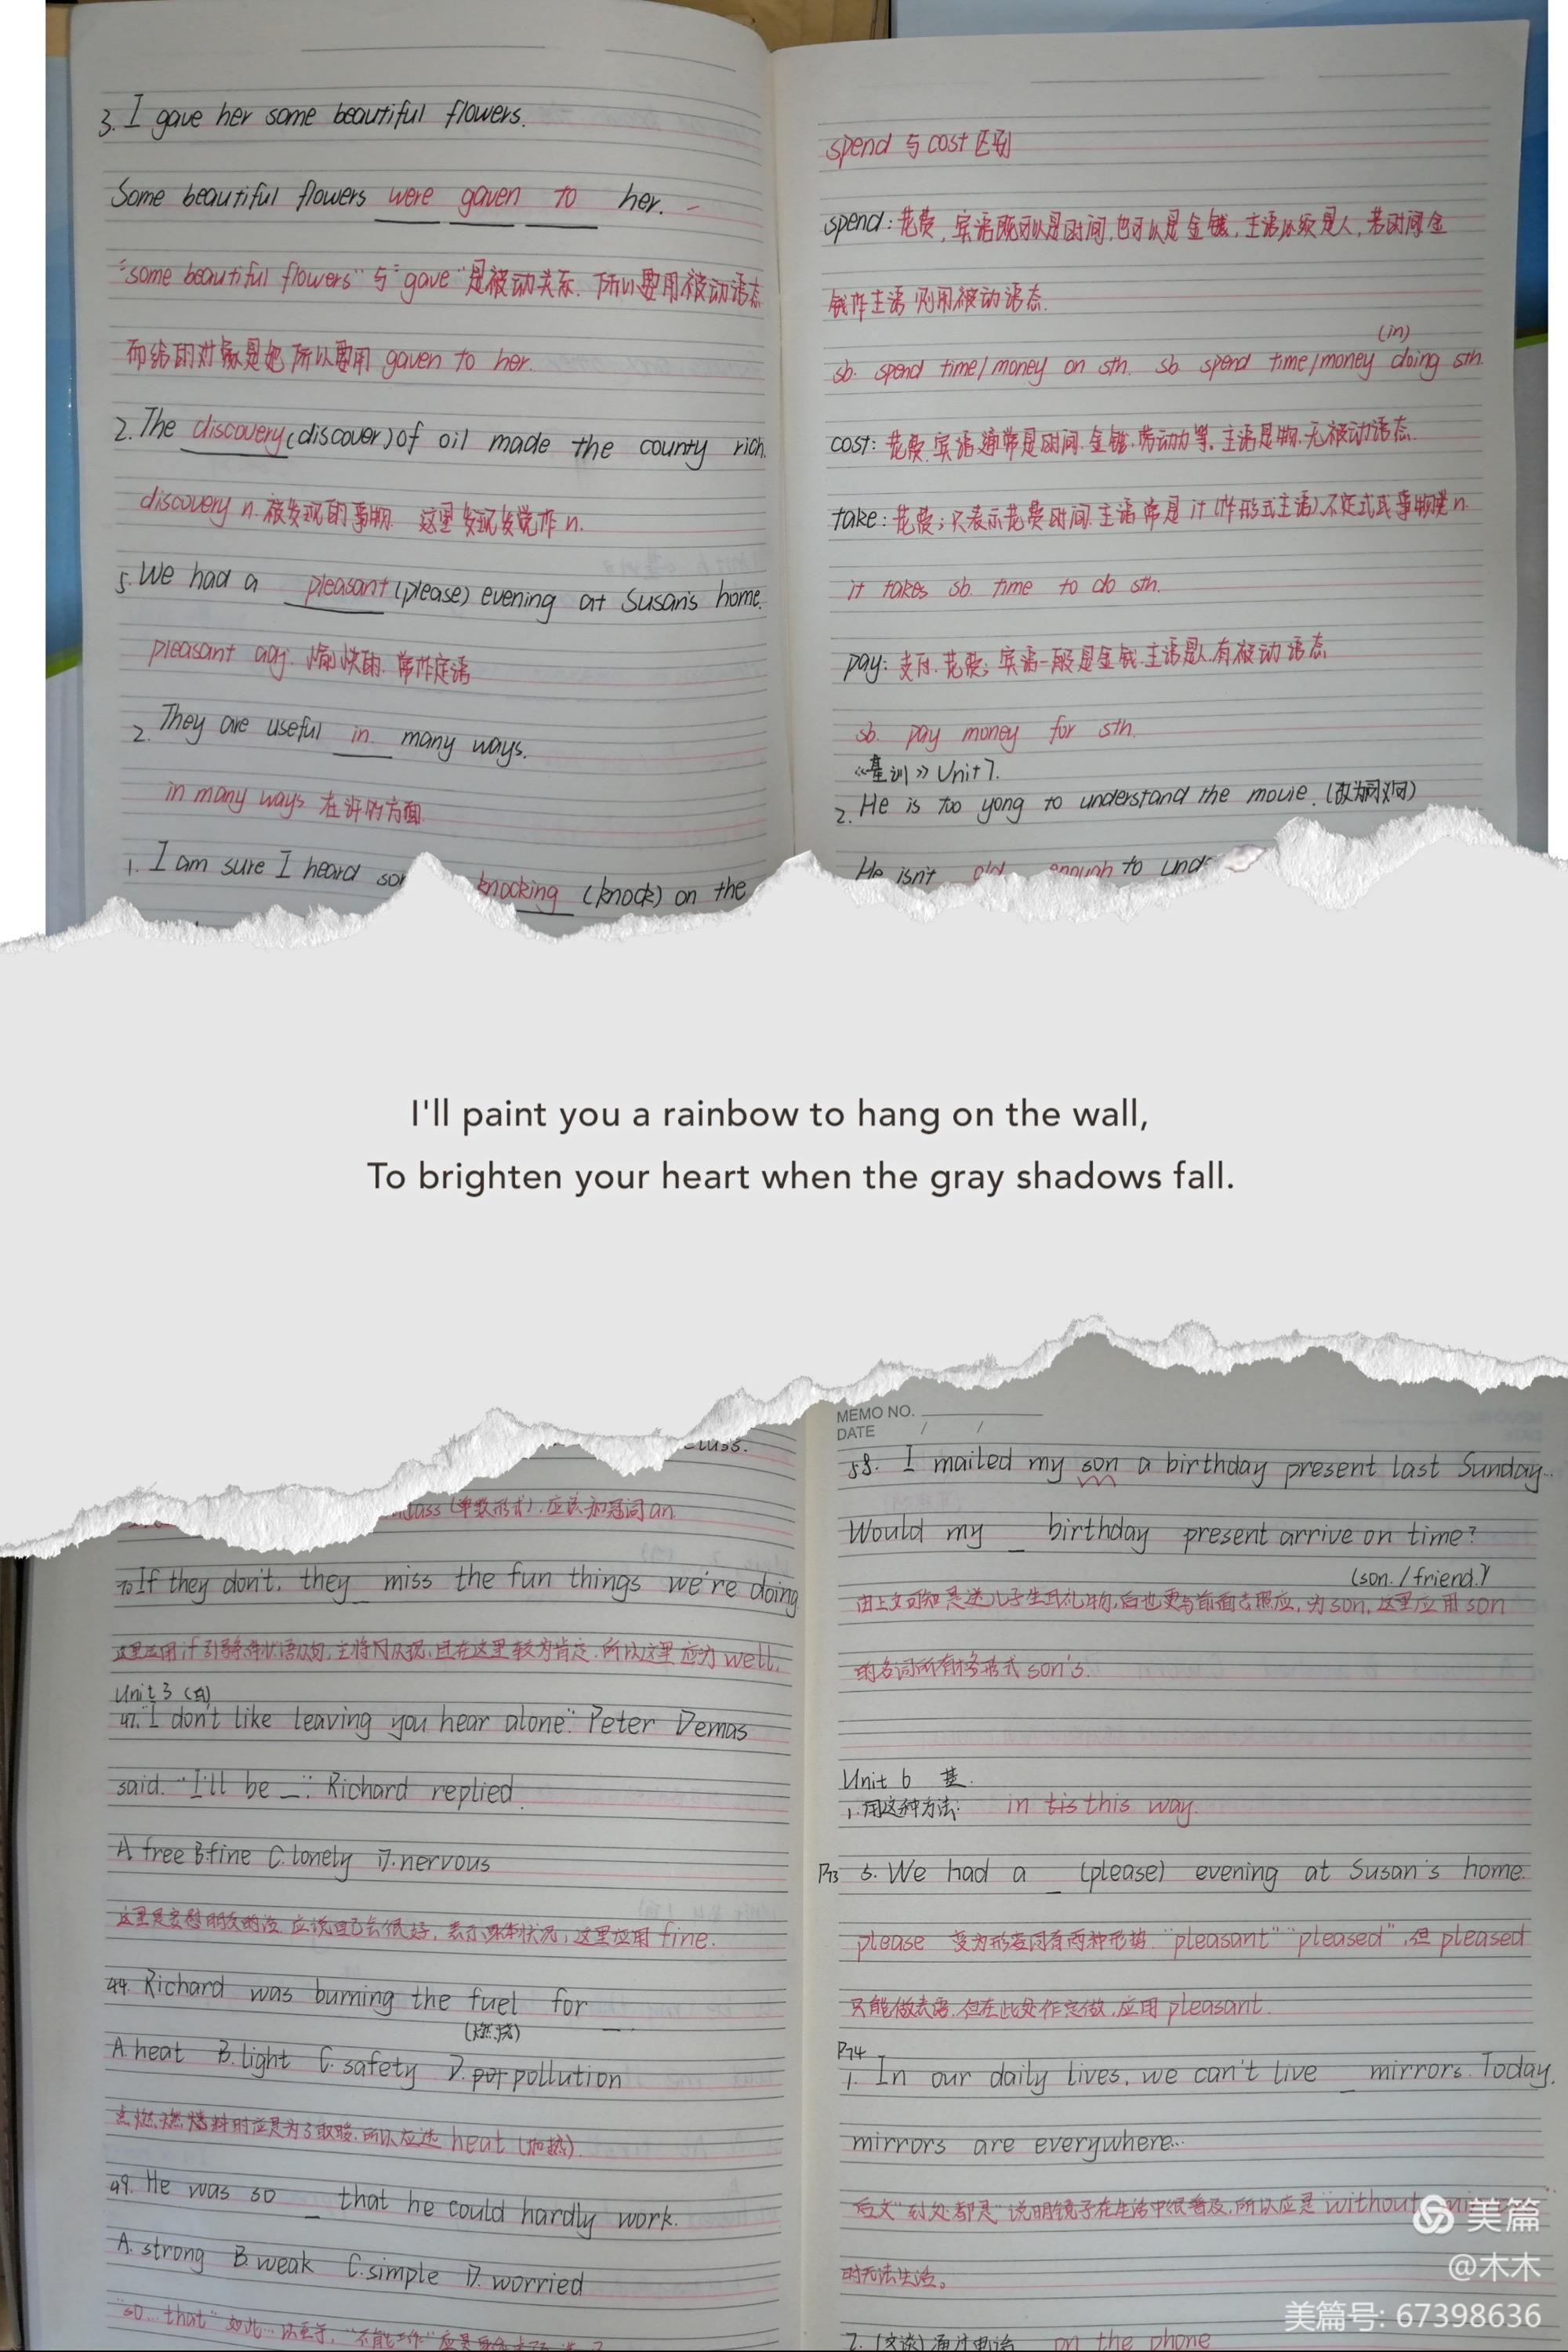 3. I gave her some beautiful flowers.
Some beautiful flowers were gaven to her.
"some beautiful flowers" 与 "gave" 是被动关系. 所以要用被动语态
而给的对象是她 所以要用 gaven to her.
2. The discovery (discover) of oil made the county rich.
discovery n. 被发现的事物. 这里发现发觉作 n.
5. We had a pleasant (please) evening at Susan's home.
pleasant adj. 愉快的. 常作定语
2. They are useful in many ways.
in many ways 在许多方面
1. I am sure I heard knocking (knock) on the
spend 与 cost 区别
spend: 花费, 宾语既可以是时间, 也可以是金钱, 主语必须是人, 若时间金
钱作主语 则用被动语态.
(in)
sb. spend time/money on sth. sb. spend time/money doing sth.
cost: 花费. 宾语通常是时间. 金钱. 劳动力等. 主语是物. 无被动语态.
take: 花费; 只表示花费时间. 主语常是 it (作形式主语). 不定式或事物类 n.
it takes sb. time to do sth.
pay: 支付. 花费; 宾语一般是金钱. 主语是人. 有被动语态
sb. pay money for sth.
《基训》 Unit 7.
2. He is too yong to understand the movie. (改为同义句)
He isn't old enough to
I'll paint you a rainbow to hang on the wall,
To brighten your heart when the gray shadows fall.
class.
(单数形式). 应该加冠词 an.
70 If they don't, they _ miss the fun things we're doing
这里应用 if 引导条件状语从句, 主将从现, 且在这里较为肯定. 所以这里应为 well.
Unit 3 (白)
47. "I don't like leaving you hear alone." Peter Demas
said. "I'll be _." Richard replied.
A. free B. fine C. lonely D. nervous
这里是安慰朋友的话 应说自己会很好, 表示身体状况, 这里应用 fine.
44. Richard was burning the fuel for _
(燃烧)
A. heat B. light C. safety D. por pollution
点燃燃料时应是为了取暖. 所以应选 heat (加热).
49. He was so _ that he could hardly work.
A. strong B. weak C. simple D. worried
"so... that" 如此... 以至于, "不能工作" 应是
MEMO NO.
DATE / /
58. I mailed my son a birthday present last Sunday...
Would my _ birthday present arrive on time?
(son./friend.)
由上文可知是送儿子生日礼物, 为 son, 这里应用 son
的名词所有格形式 son's.
Unit 6 基.
1. 用这种方法: in tis this way.
P73 5. We had a _ (please) evening at Susan's home.
please 变为形容词有两种形势 "pleasant" "pleased", 但 pleased
只能做表语, 但在此处作定做, 应用 pleasant.
P74
1. In our daily lives, we can't live _ mirrors. Today,
mirrors are everywhere...
后文 "到处都是" 说明镜子在生活中很普及, 所以应是 "without
时无法生活。
2. (交谈) 通过电话 on the phone
美篇
@木木
美篇号: 67398636